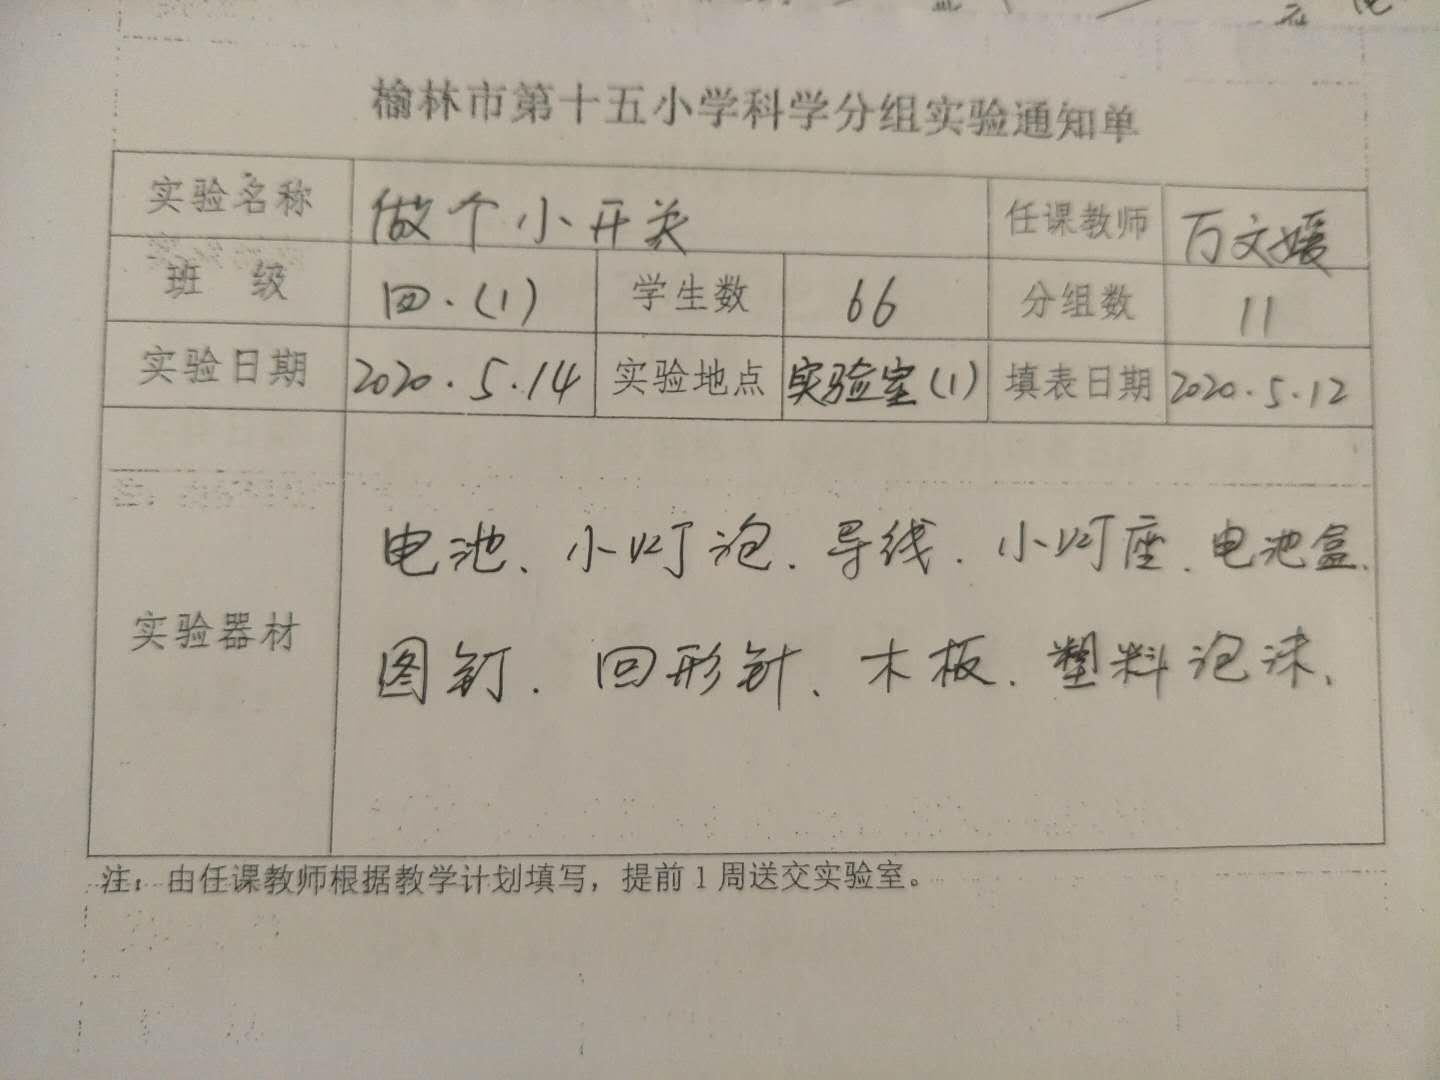 榆林市第十五小学科学分组实验通知单
实验名称 做个小开关 任课教师 万文媛
班 级 四.(1) 学生数 66 分组数 11
实验日期 2020.5.14 实验地点 实验室(1) 填表日期 2020.5.12
电池、小灯泡、导线、小灯座、电池盒、
实验器材
图钉、回形针、木板、塑料泡沫、
注：由任课教师根据教学计划填写，提前1周送交实验室。